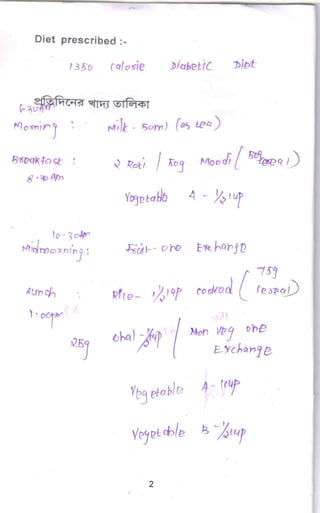 Diet prescribed :-
1350 Calosie Diabetic Diet
প্রতিদিনের খাদ্য তালিকা
6-30AM
Morning : Milk - 50ml (as tea)
Breakfast : 2 Roti / 50g Moodi (50g
8-30 Am
Vegetable A - 1/2 cup
10-30AM
Midmorning : Fruit - One Exchange
75g
Lunch : Rice - 1 1/2 cup cooked (cereal)
1.00pm
25g Dhal - 1/2 cup / Non veg one
Exchange
Vegetable A - 1cup
Vegetable B - 1/2 cup
2